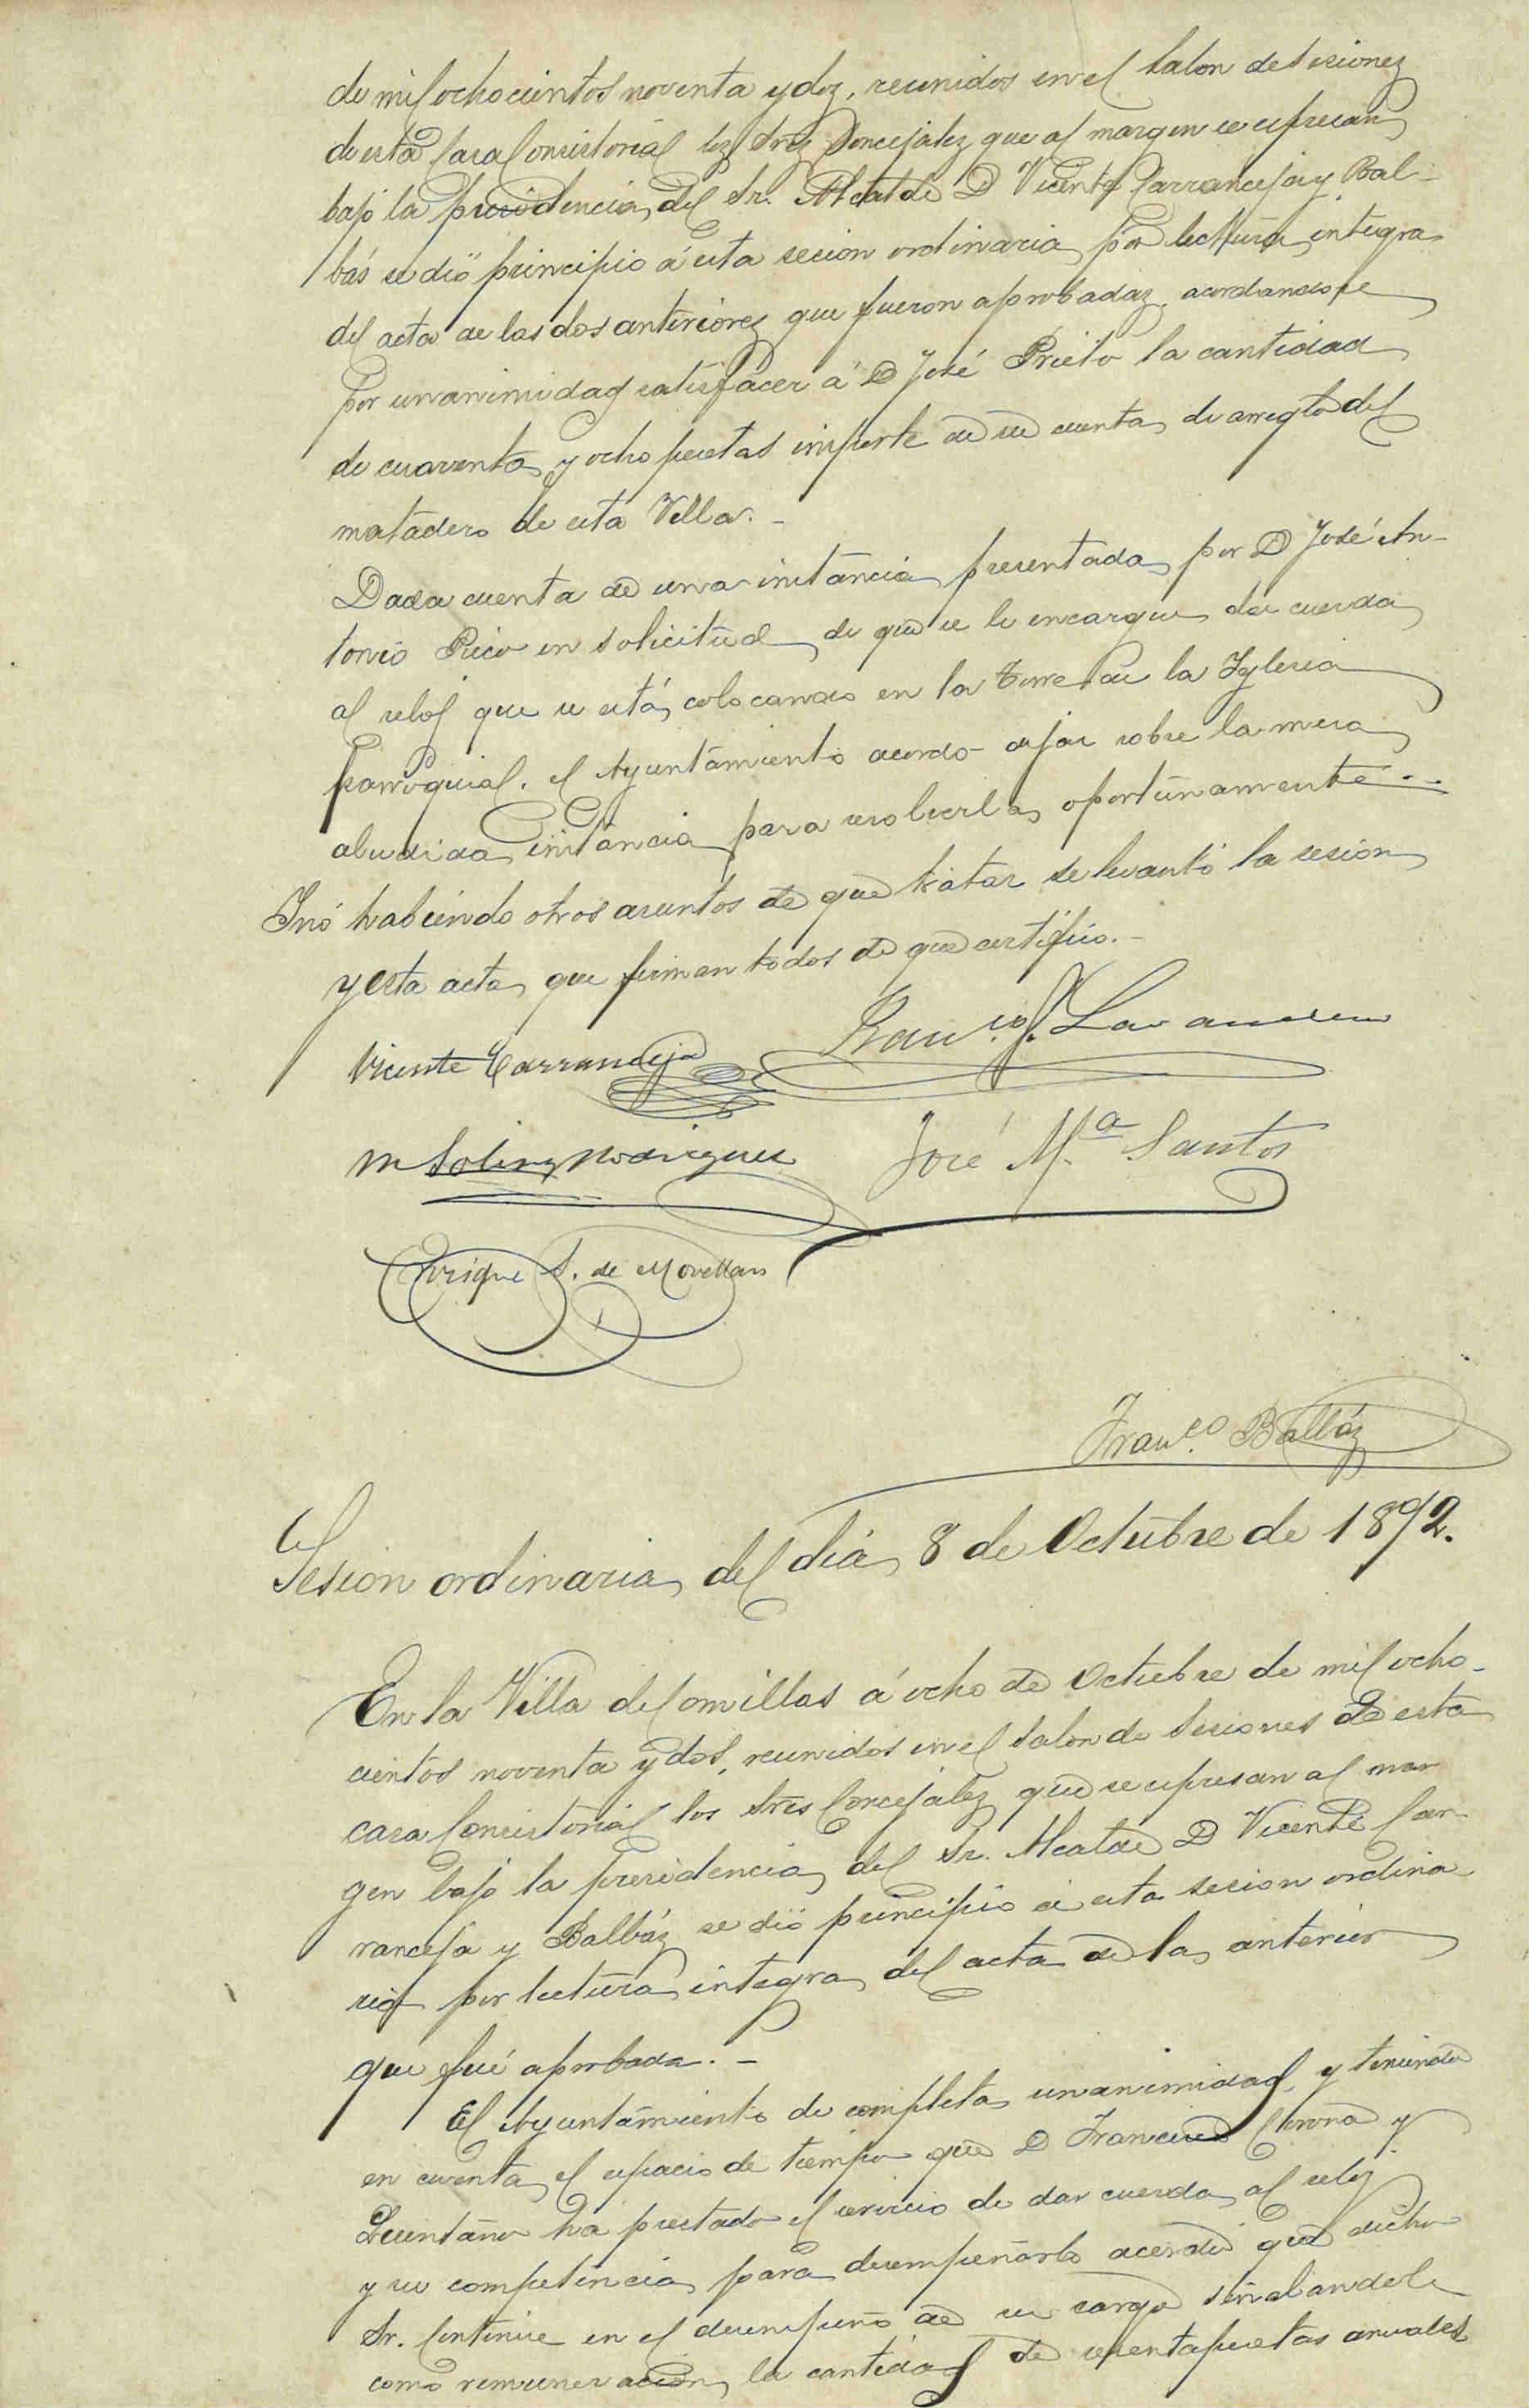 de mil ochocientos noventa y dos, reunidos en el salon de sesiones
de esta Casa Consistorial los Sres Concejales que al margen se espresan
bajo la presidencia del Sr. Alcalde D Vicente Carranceja y Bal-
bás se dió principio á esta sesion ordinaria por lectura integra
del acta de las dos anteriores que fueron aprobadas, acordandose
por unanimidad satisfacer á D José Prieto la cantidad
de cuarenta y ocho pesetas importe de su cuenta de arreglo del
matadero de esta Villa.-
Dada cuenta de una instancia presentada por D José An-
tonio Rico en solicitud de que se le encargue dar cuerda
al reloj que se está colocando en la torre de la Iglesia
parroquial, el Ayuntamiento acordó dejar sobre la mesa
aludida instancia para resolverla oportunamente.-
Y nó habiendo otros asuntos de que tratar se levantó la sesion
y esta acta que firman todos de que certifico.-
Vicente Carranceja
Franco. J.
M Soling Rodriguez
José M.a Santos
Enrique S. de Movellan
Franco. Balbás
Sesion ordinaria del dia 8 de Octubre de 1892.
En la Villa de Comillas á ocho de Octubre de mil ocho-
cientos noventa y dos, reunidos en el salon de sesiones de esta
casa Consistorial los Sres Concejales que se espresan al mar
gen bajo la presidencia del Sr. Alcalde D Vicente Car-
ranceja y Balbás se dió principio á esta sesion ordina
ria por lectura integra del acta de la anterior
que fué aprobada.-
El Ayuntamiento de completa unanimidad, y teniendo
en cuenta el espacio de tiempo que D Francisco Corona y
Quintana ha prestado el servicio de dar cuerda al reloj
y su competencia para desempeñarlo acordó que dicho
Sr. Continúe en el desempeño de su cargo señalandole
como remuneracion la cantidad de sesenta pesetas anuales